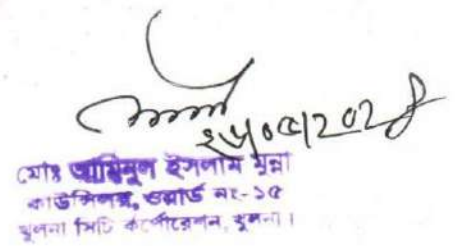 ২৮/০৫/২০২৪
মোঃ আমিমুল ইসলাম মুন্না
কাউন্সিলর, ওয়ার্ড নং-১৫
খুলনা সিটি কর্পোরেশন, খুলনা।